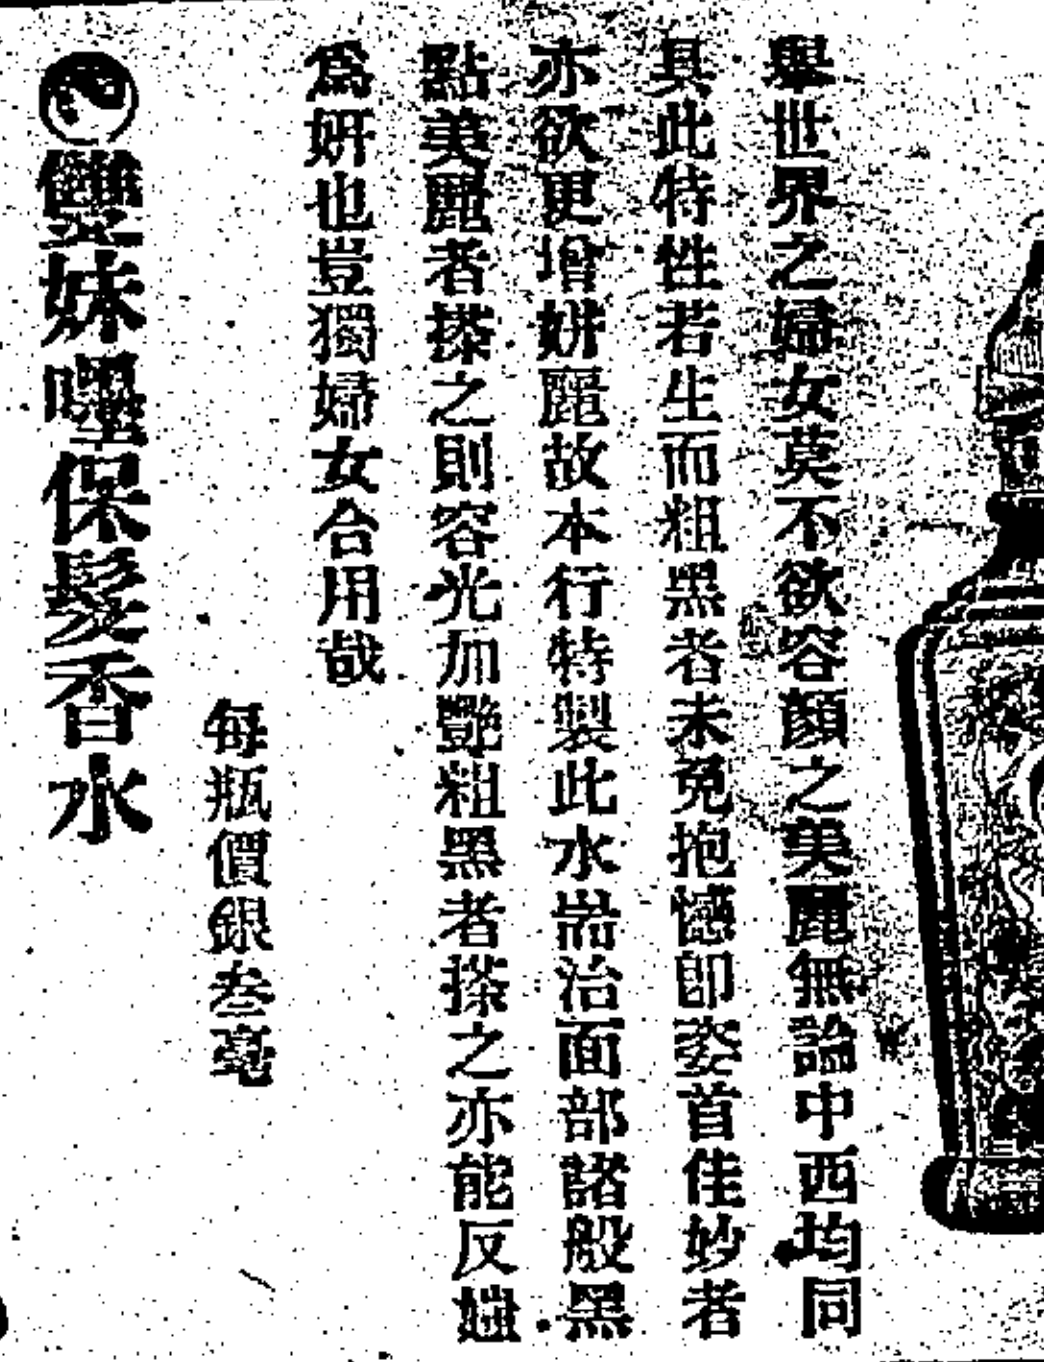 舉世界之婦女莫不欲容顏之美麗無論中西均同
具此特性若生而粗黑者未免抱憾卽姿首佳妙者
亦欲更增姸麗故本行特製此水耑治面部諸般黑
點美麗者搽之則容光加艷粗黑者搽之亦能反媸
爲妍也豈獨婦女合用哉
每瓶價銀叁毫
雙妹嚜保髮香水